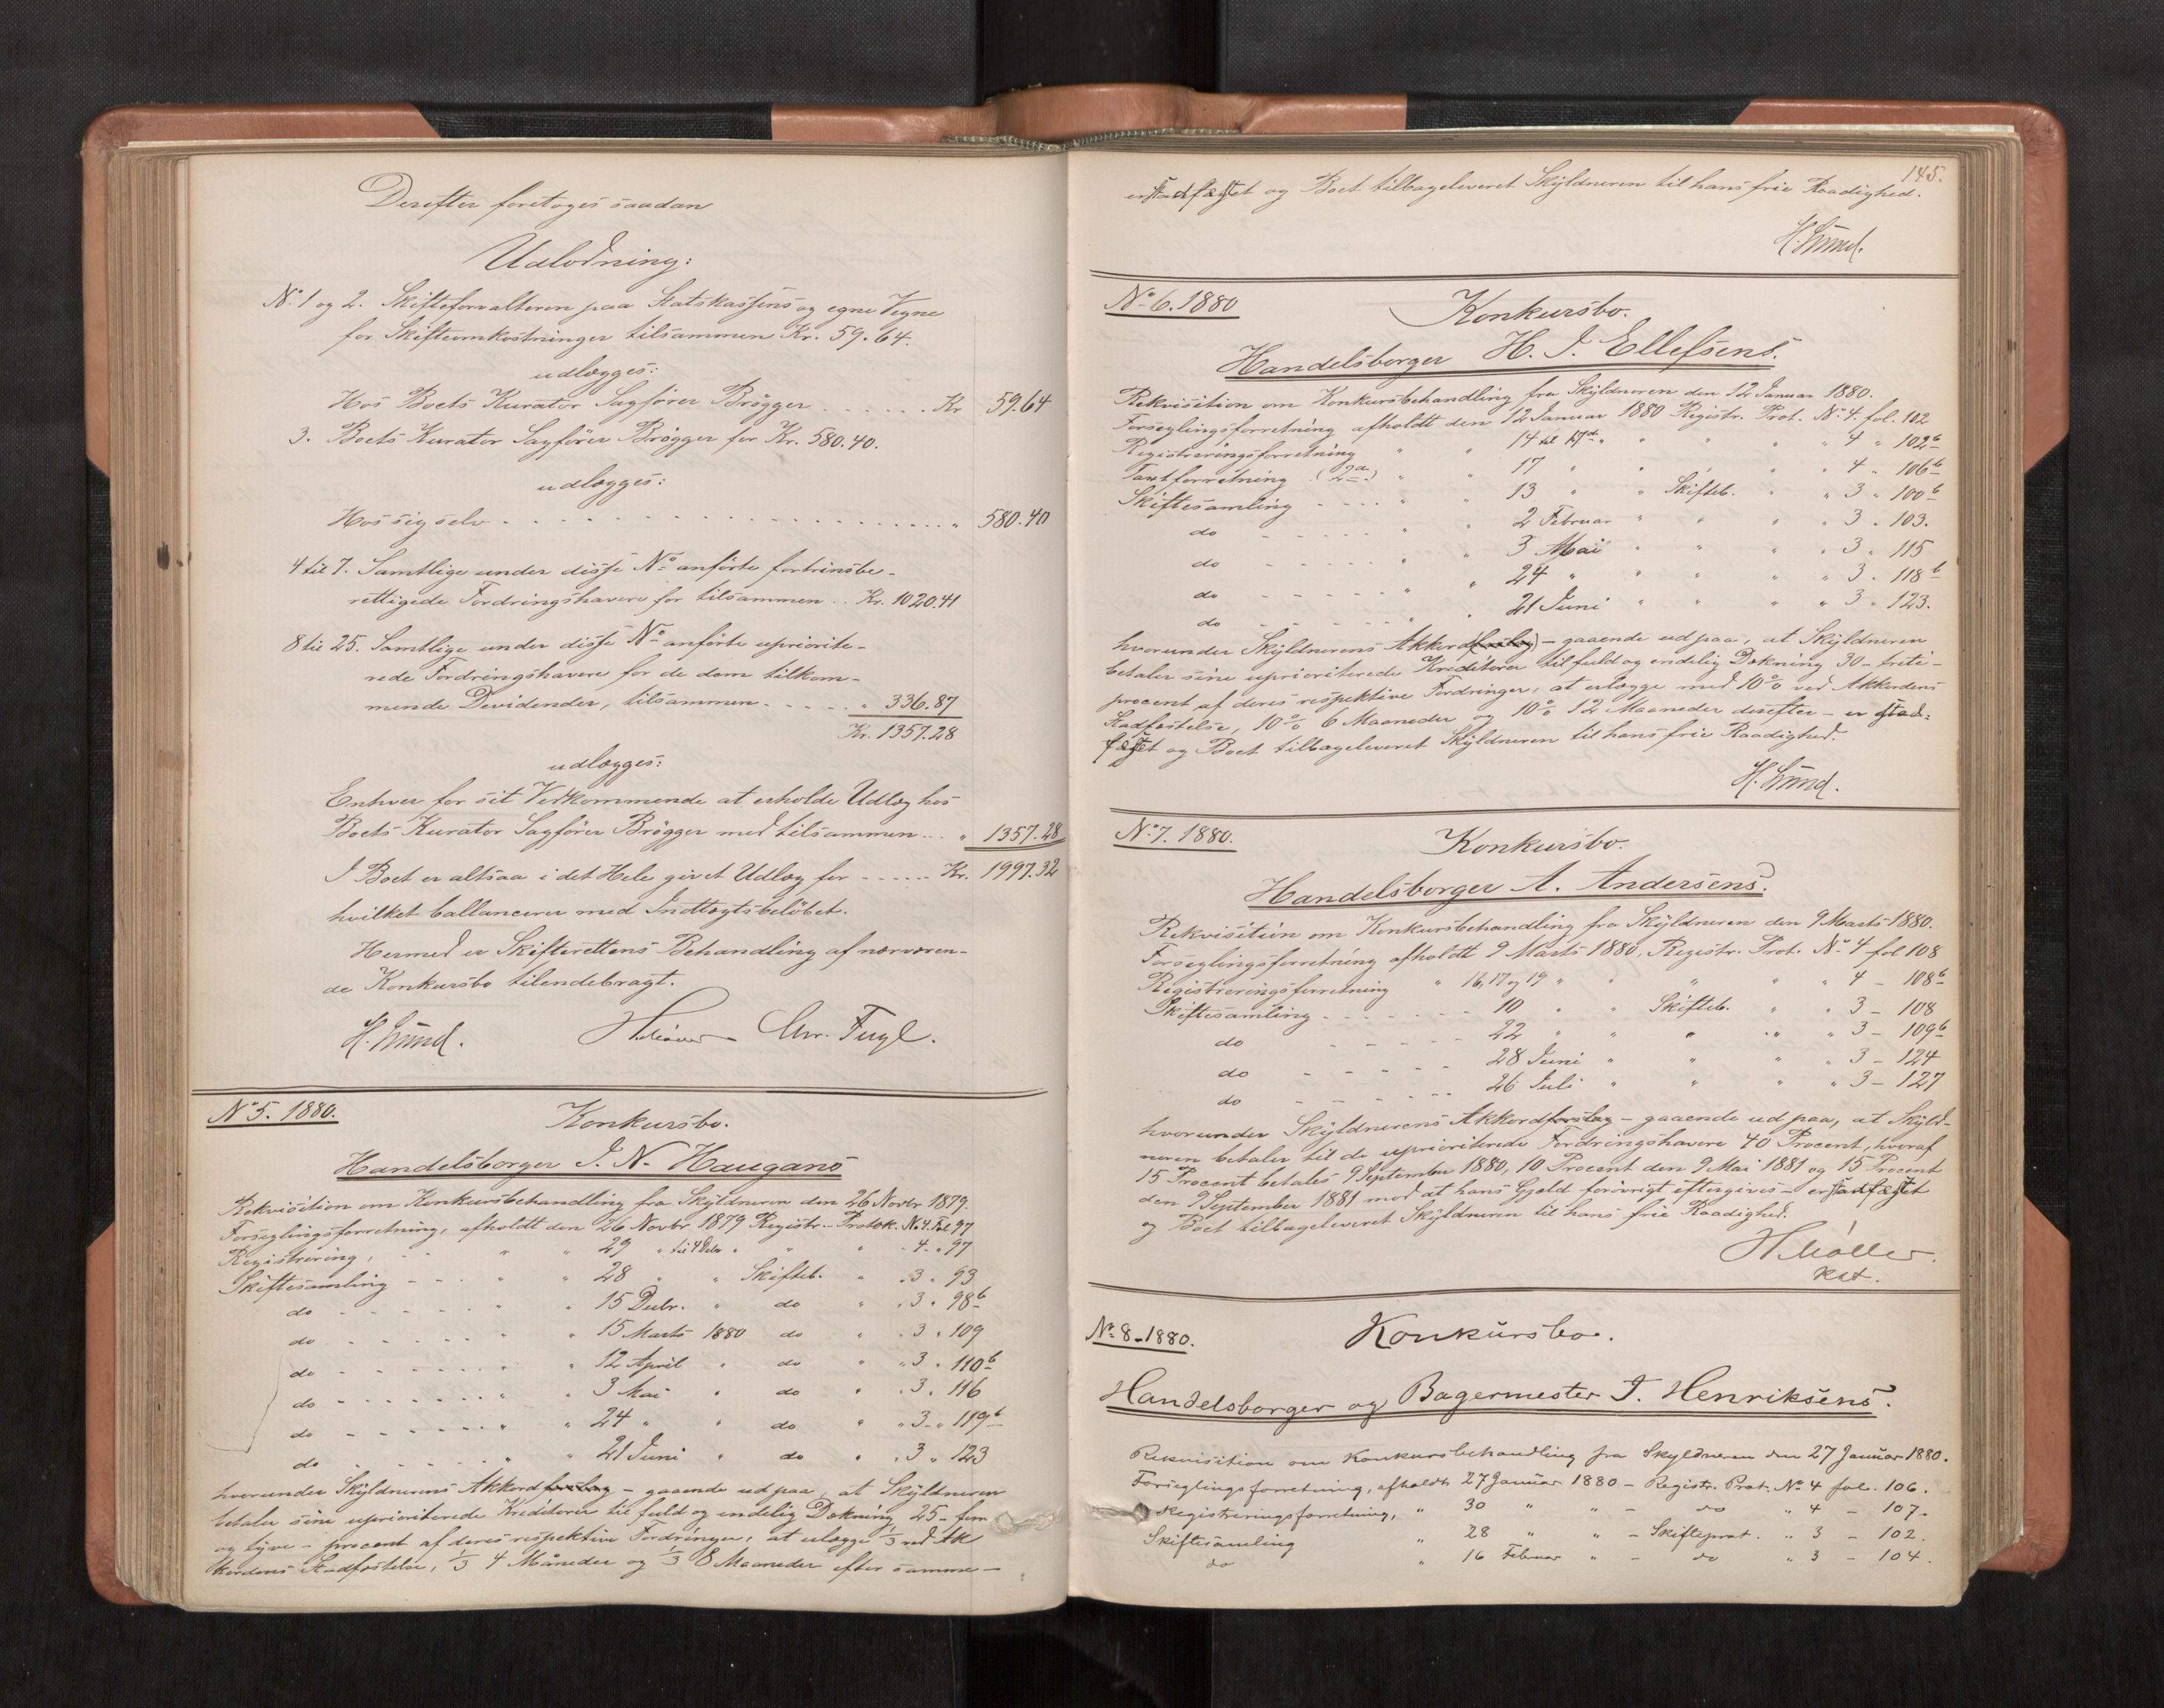 Derefter foretoges saadan
Udlodning:
No. 1 og 2. Skifteforvalteren paa Statskassens og egne Vegne
for Skifteomkostninger tilsammen Kr. 59.64.
udlægges:
Hos Boets Kurator Sagfører Brøgger . . . . . . Kr 59.64
3. Boets Kurator Sagfører Brøgger for Kr. 580.40.
udlægges:
Hos sig selv . . . . . . . . . . . . " 580.40
4 til 7. Samtlige under disse No anførte fortrinsbe-
rettigede Fordringshavere for tilsammen . . Kr. 1020.41
8 til 25. Samtlige under disse No anførte upriorite-
rede Fordringshavere for de dem tilkom-
mende Dividender, tilsammen - - - - - " 336.87
Kr. 1357.28
udlægges:
Enhver for sit Vedkommende at erholde Udlæg hos
Boets Kurator Sagfører Brøgger med tilsammen . . . " 1357.28
I Boet er altsaa i det Hele givet Udlæg for - - - - - Kr. 1997.32
hvilket ballancerer med Indtægtsbeløbet.
Hermed er Skifterettens Behandling af nærværen-
de Konkursbo tilendebragt.
Chr. Fugl.
No 5. 1880.
Konkursbo.
Handelsborger J. N. Haugans
Rekvisition om Konkursbehandling fra Skyldneren den 26 Novbr 1879.
Forseglingsforretning, afholdt den 26 Novbr 1879 Registr. Protok. No 4. fol 97
Registrering, " " 29 " til 4 Debr " " " 4 " 97
Skiftesamling - - - " " 28 " " Skifteb. " " 3 " 93
do - - - - - " " 15 Debr. " do " " 3 " 98b
do - - - - - " " 15 Marts 1880 do " " 3 " 109
do - - - - - " " 12 April " do " " 3 " 110b
do - - - - - " " 3 Mai " do " " 3 " 116
do - - - - - " " 24 " " do " " 3 " 119b
do - - - - - " " 21 Juni " do " " 3 " 123
hvorunder Skyldnerens Akkordforslag - gaaende ud paa, at Skyldneren
betaler sine uprioriterede Kreditorer til fuld og endelig Dækning 25 - fem
og tyve - procent af deres respektive Fordringer, at erlægge 1/3 ved Ak
kordens Stadfæstelse, 1/3 4 Måneder og 1/3 8 Maaneder efter samme -
145.
er stadfæstet og Boet tilbageleveret Skyldneren til hans frie Raadighed.
No 6. 1880
Konkursbo.
Handelsborger H. J. Ellefsens.
Rekvisition om Konkursbehandling fra Skyldneren den 12 Januar 1880.
Forseglingsforretning afholdt den 12 Januar 1880 Registr. Prot. No 4. fol. 102
Registreringsforretning " " 14 til 17de " " " " " 4 " 102b
Taxtforretning (2a) " " 17 " " " " " 4 " 106b
Skiftesamling - - - - " " 13 " " Skifteb. " " 3 " 100b
do - - - - - " " 2 Februar " " " " 3 " 103.
do - - - - - " " 3 Mai " " " " 3 " 115
do - - - - - " " 24 " " " " " 3 " 118b
do - - - - - " 21 Juni " " " " 3 " 123.
hvorunder Skyldnerens Akkord(forslag) - gaaende ud paa, at Skyldneren
betaler sine uprioriterede Kreditorer til fuld og endelig Dækning 30 - treti -
procent af deres respektive Fordringer, at erlægge med 10% ved Akkordens
Stadfæstelse, 10% 6 Maaneder og 10% 12 Maaneder derefter - er stad=
fæstet og Boet tilbageleveret Skyldneren til hans frie Raadighed.
No 7. 1880.
Konkursbo.
Handelsborger A. Andersens.
Rekvisition om Konkursbehandling fra Skyldneren den 9 Marts 1880.
Forseglingsforretning afholdt 9 Marts 1880, Registr. Prot. No 4 fol 108
Registreringsforretning " 16, 17 og 19 " " " " " 4 - 108b
Skiftesamling - - - - - 10 " " Skifteb. " " 3 - 108
do - - - - - 22 " " " " " 3 - 109b
do - - - - - 28 Juni " " " " 3 - 124
do - - - - - 26 Juli " " " " 3 - 127
hvorunder Skyldnerens Akkordforslag - gaaende ud paa, at Skyld-
neren betaler til de uprioriterede Fordringshavere 40 Procent, hvoraf
15 Procent betales 9 September 1880, 10 Procent den 9 Mai 1881 og 15 Procent
den 9 September 1881 mod at hans Gjæld forøvrigt eftergives - er stadfæstet
og Boet tilbageleveret Skyldneren til hans frie Raadighed.
H Møller
kst.
No 8 - 1880.
Konkursbo.
Handelsborger og Bagermester J. Henriksens.
Rekvisition om Konkursbehandling fra Skyldneren den 27 Januar 1880.
Forseglingsforretning, afholdt 27 Januar 1880 - Registr. Prot. No 4 fol. 106.
Registreringsforretning, " 30 " " - do " 4 - 107.
Skiftesamling " 28 " " - Skifteprot. " 3 - 102.
do " 16 Februar " - do " 3 - 104.